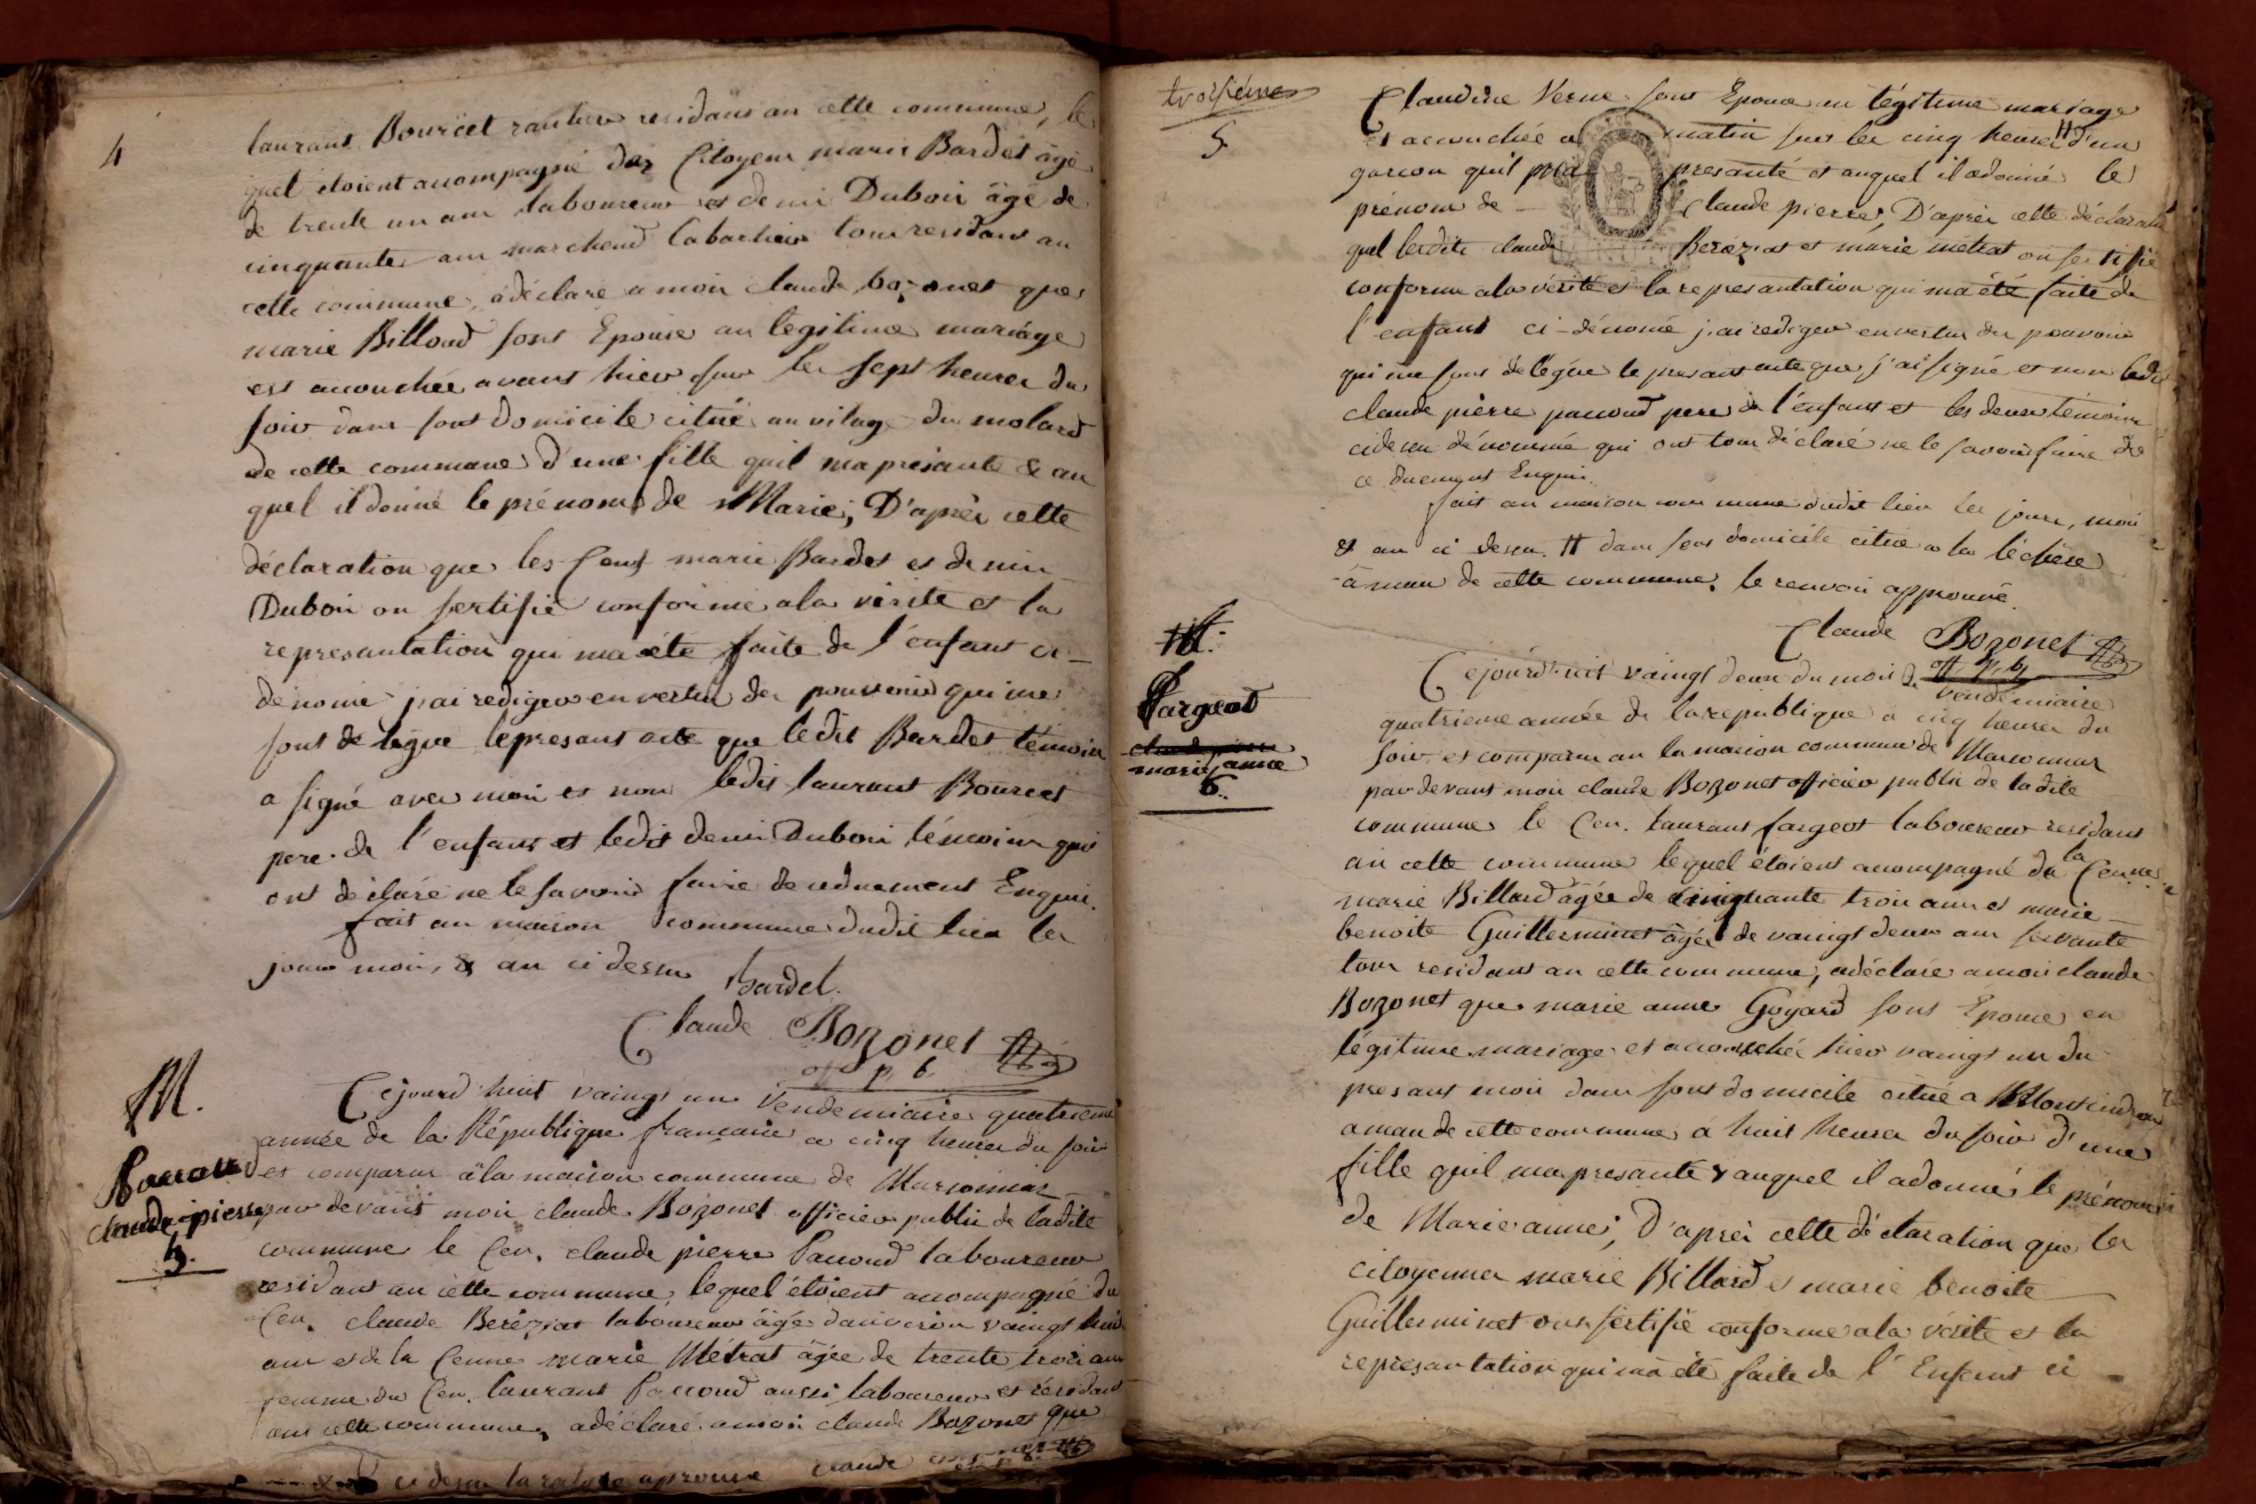 4
laurant Bourcet rantier residans an cette commune, le
quel étoient acompagné des Citoyens marie Bardet âgé
de trente un ans laboureur et denis Dubois âgé de
cinquante ans marchend Cabartier tous residans an
cette commune, adéclaré a moi claude bozonet que
marie Billoud sont Epouse an legitime mariage
est acouchée avant hier sur les sept heures du
soir dans sont domicile citué au vilage du molard
de cette commune d'une fille quil ma présanté & au
quel il donné le prénoms de Marie, D'après cette
déclaration que les Cens marie Bardet et denis
Dubois on sertifié conforme ala vérité et la
represantation qui ma été faite de l'enfant ci-
dénomé j'ai rediger en vertu des pouvoirs qui me
sont delégué le presant acte que ledit Bardet témoin
a signé avec moi et non ledit laurant Bourcet
pere de l'enfant et ledit denis Dubois témoins qui
ont déclaré ne le savoir faire de ce duement Enquis.
fait an maison commune dudit lieu les
jour mois, & an ci dessus
bardet.
Claude Bozonet
off p. b.
M.
Paccoud
claude pierre
5.
Cejourd'huit vaingt un Vendemiaire quatrieme
année de la République française a cinq heures du soir
et comparu à la maison commune de Marsonnas
par devant moi claude Bozonet officier public de ladite
commune le Cen. claude pierre Paccoud laboureur
residant an cette commune, lequel étoient acompagné du
Cen. claude Beréziat laboureur âgé danviron vaingt huit
ans et de la Cenne marie Métrat âgée de trente trois ans
femme du Cen. laurant Paccoud aussi laboureur et résidant
ans cette commune, adéclaré amoi claude Bozonet que
ci dessus la rature aprouvé claude
troisième
5
Claudine Verne sont Epouse en légitime mariage
et acouchée matin sur les cinq heures # d'un
garçon quil présanté et auquel il adonné le
prénom de - Claude pierre, D'après cette déclaration
quel lesdits claude Beréziat et marie métrat on sertifié
conforme ala vérité et la represantation qui ma été faite de
l'enfant ci-dénomé j'ai rediger en vertu des pouvoirs
qui me sont delégué le presant acte que j'ai signé et non ledit
claude pierre paccoud pere de l'enfant et les deux témoins
cidessu dénommé qui ont tous déclaré ne le savoir faire de
ce duement Enquis.
fait an maison commune dudit lieu les jour, mois
et an ci dessu. # dans sont domicile citué a la léchère
âmau de cette commune. le renvoi approuvé.
Claude Bozonet
off. p. b.
M.
Fargeot
marie anne
6.
Cejourd'huit vaingt deux du mois de vendémiaire
quatrieme année de la republique a cinq heures du
soir et comparu an la maison commune de Marsonnas
par devant moi claude Bozonet officier public de ladite
commune le Cen. laurant fargeot laboureur residant
an cette commune lequel étoient acompagné de la Cenne.
marie Billard âgée de cinquante trois ans et marie
benoite Guilleminet âgée de vaingt deux ans servante
tous residans an cette commune, adéclaré a moi claude
Bozonet que marie anne Goyard sont Epouse en
légitime mariage et acouchée hier vaingt un du
presant mois dans sont domicile citué a
amau de cette commune a huit heures du soir d'une
fille quil ma presanté & auquel il adonné le prénom
de Marie anne, D'après cette déclaration que les
citoyennes marie Billard et marie benoite
Guilleminet ont sertifié conforme ala vérité et la
represantation qui ma été faite de l'Enfant ci